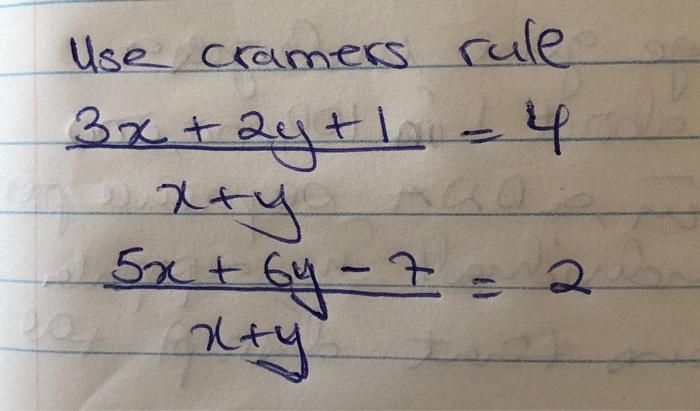 Use cramers rule
3x + 2y + 1 = 4
x+y
5x + 6y - 7 = 2
x+y